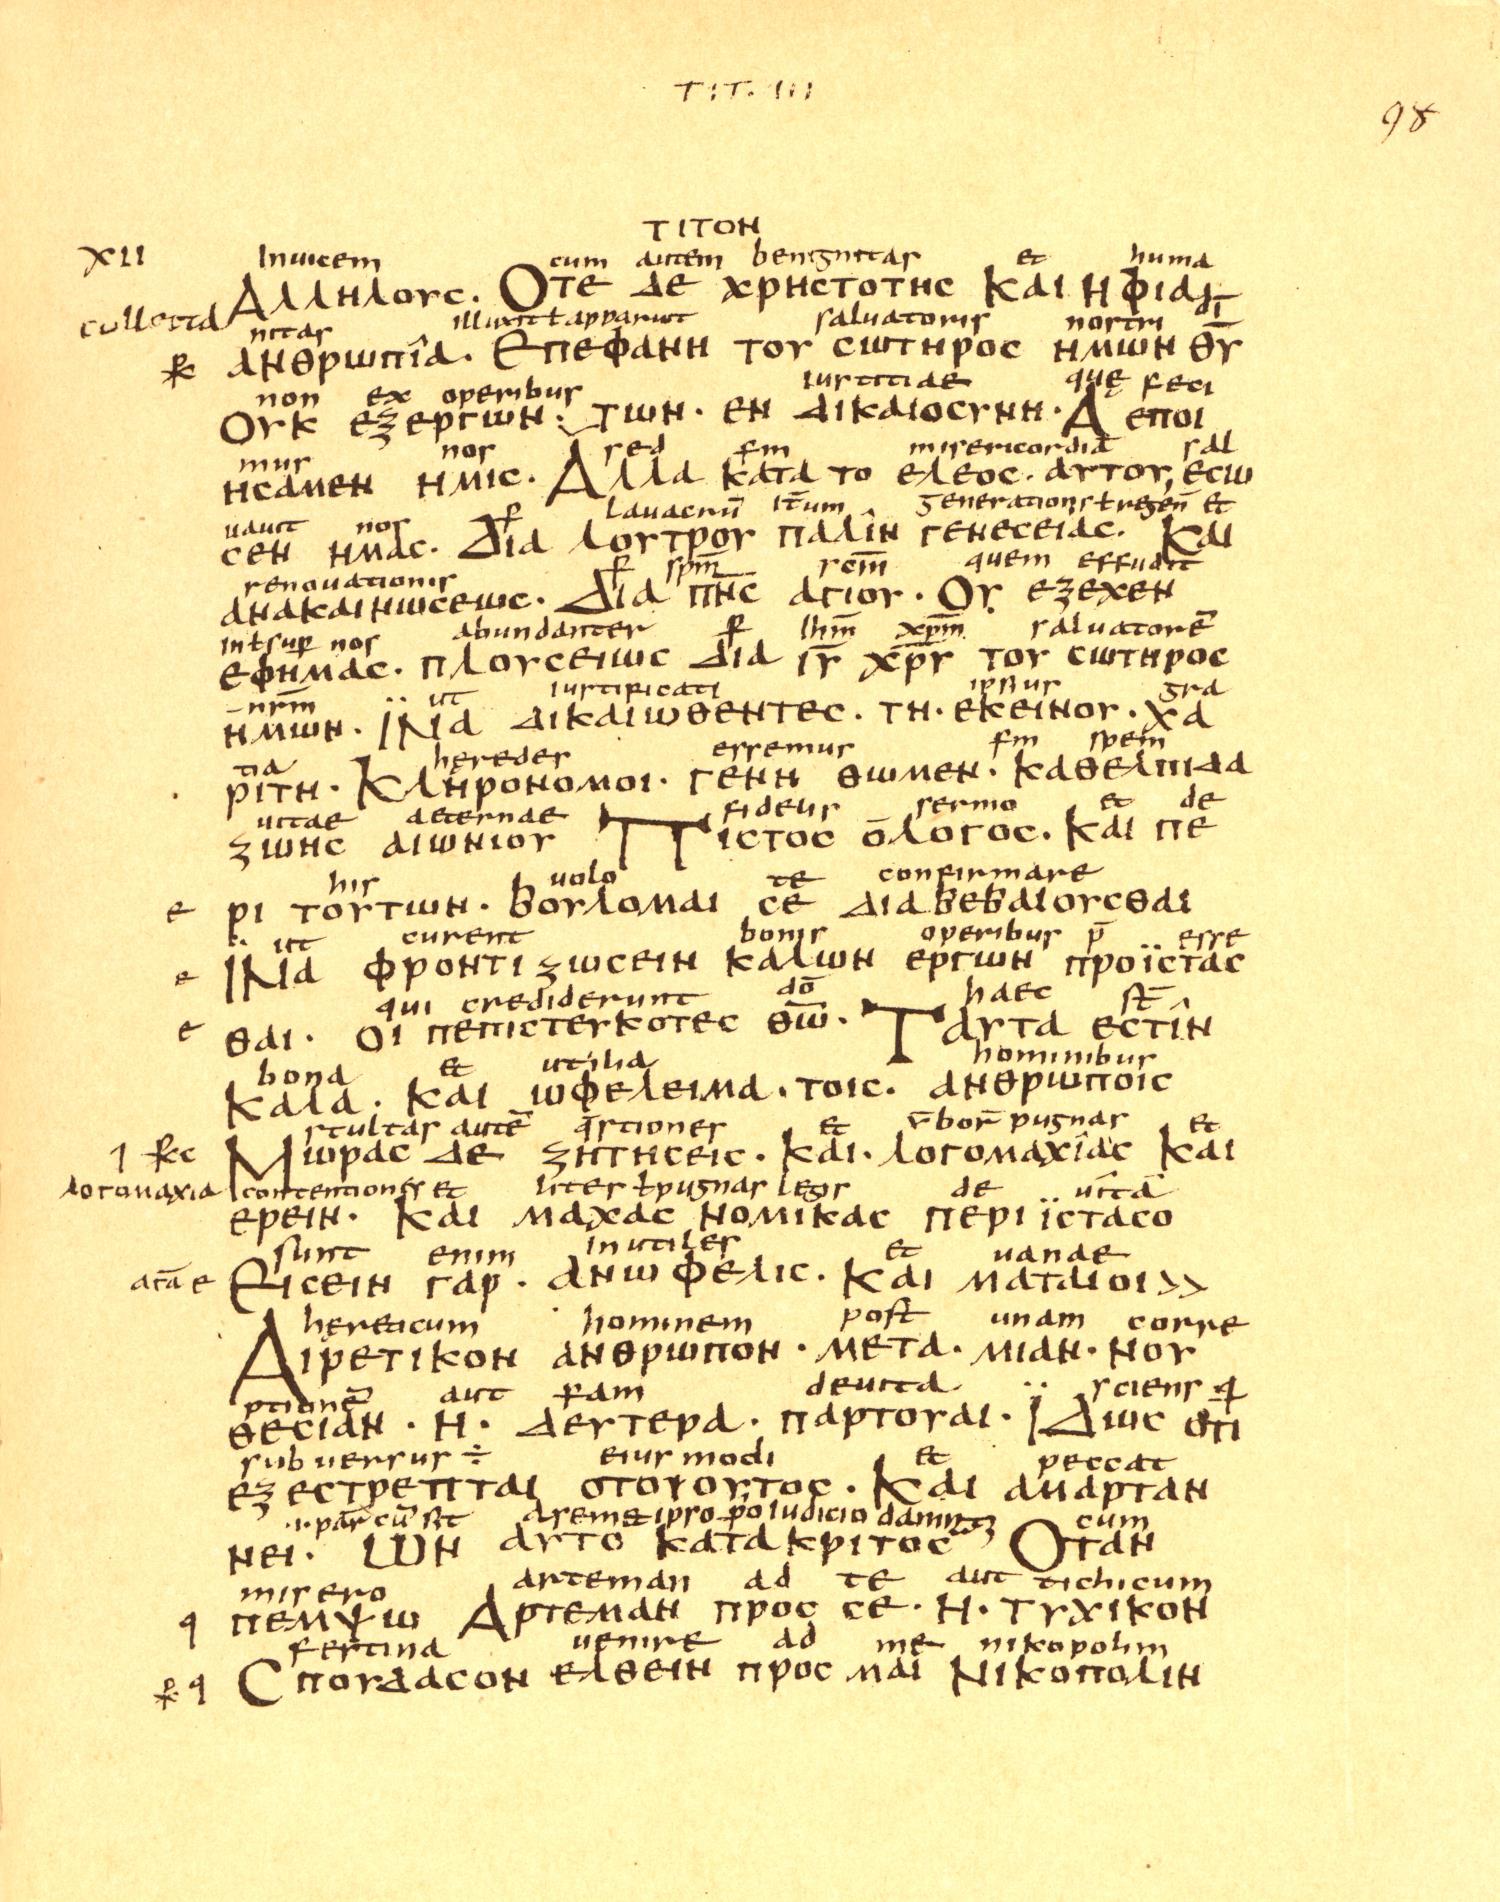 TIT. III
98
ΤΙΤΟΝ
XII Inuicem cum autem benignitas et huma
collecta ΑλληλΟΥϹ. ΟΤΕ ΔΕ ΧΡΗϹΤΟΤΗϹ ΚΑΙ Η ΦΙΛ
nitas illuxit ł apparuit saluatoris nostri
ΑΝΘΡΩΠΙΑ. ΕΠΕΦΑΝΗ ΤΟΥ ϹΩΤΗΡΟϹ ΗΜΩΝ Θ̅Υ̅
non ex operibus iustitiae quę feci
ΟΥΚ ΕΞΕΡΓΩΝ· ΤΩΝ· ΕΝ ΔΙΚΑΙΟϹΥΝΗ· Α ΕΠΟΙ
mus nos sed sm misericordiā sal
ΗϹΑΜΕΝ ΗΜΙϹ. ΑΛΛΑ ΚΑΤΑ ΤΟ ΕΛΕΟϹ. ΑΥΤΟΥ, ΕϹΩ
uauit nos p lauacrū it̄um generationis ł regen̄ et
ϹΕΝ ΗΜΑϹ· ΔΙΑ ΛΟΥΤΡΟΥ ΠΑΛΙΝ ΓΕΝΕϹΕΙΑϹ. ΚΑΙ
renouationis p sp̄m scm̄ quem effudit
ΑΝΑΚΑΙΝΩϹΕΩϹ. ΔΙΑ Π̅Ν̅Ϲ̅ ΑΓΙΟΥ. ΟΥ ΕΞΕΧΕΝ
in ł sup nos abundanter p ihm̄ xp̄m saluatorē
ΕΦΗΜΑϹ. ΠΛΟΥϹΕΙΩϹ ΔΙΑ Ι̅Υ̅ Χ̅Ρ̅Υ̅ ΤΟΥ ϹΩΤΗΡΟϹ
nr̄m ut iustificati ipsius gra
ΗΜΩΝ. ΪΝΑ ΔΙΚΑΙΩΘΕΝΤΕϹ. ΤΗ· ΕΚΕΙΝΟΥ. ΧΑ
tia hęredes essemus sm spem
ΡΙΤΗ· ΚΛΗΡΟΝΟΜΟΙ. ΓΕΝΗ ΘΩΜΕΝ. ΚΑΘΕΛΠΙΔΑ
uitae aeternae fideuſ sermo et de
ΖΩΗϹ ΑΙΩΝΙΟΥ ΠΙϹΤΟϹ Ο ΛΟΓΟϹ. ΚΑΙ ΠΕ
his uolo te confirmare
e ΡΙ ΤΟΥΤΩΝ. ΒΟΥΛΟΜΑΙ ϹΕ ΔΙΑΒΕΒΑΙΟΥϹΘΑΙ
ut curent bonis operibus p̄ esse
e ΪΝΑ ΦΡΟΝΤΙΖΩϹΕΙΝ ΚΑΛΩΝ ΕΡΓΩΝ ΠΡΟΪϹΤΑϹ
qui crediderunt dō haec st̄
e ΘΑΙ. ΟΙ ΠΕΠΙϹΤΕΥΚΟΤΕϹ Θ̅Ω̅. ΤΑΥΤΑ ΕϹΤΙΝ
bona et utilia hominibus
ΚΑΛΑ. ΚΑΙ ΩΦΕΛΕΙΜΑ. ΤΟΙϹ. ΑΝΘΡΩΠΟΙϹ
stultas autē q̄stiones et v̄bor̄ pugnas et
ΜΩΡΑϹ ΔΕ ΖΗΤΗϹΕΙϹ. ΚΑΙ. ΛΟΓΟΜΑΧΙΑϹ ΚΑΙ
λογομαχια contentiones et lites ł pugnas legis de uitā
ΕΡΕΙΝ. ΚΑΙ ΜΑΧΑϹ ΝΟΜΙΚΑϹ ΠΕΡΙ ΪϹΤΑϹΟ
sunt enim inutiles et uanae
ΕΙϹΕΙΝ ΓΑΡ. ΑΝΩΦΕΛΙϹ. ΚΑΙ ΜΑΤΑΙΟΙ >>
hęreticum hominem post unam corre
ΑΙΡΕΤΙΚΟΝ ΑΝΘΡΩΠΟΝ. ΜΕΤΑ. ΜΙΑΝ. ΝΟΥ
ptionē aut sam deuita sciens
ΘΕϹΙΑΝ. Η. ΔΕΥΤΕΡΑ. ΠΑΡΤΟΥΑΙ. ΪΔΩϹ ΟΤΙ
subuersus ÷ eius modi et peccat
ΕΞΕϹΤΡΕΠΤΑΙ ΟΤΟΙΟΥΤΟϹ. ΚΑΙ ΑΜΑΡΤΑΝ
a semet ipso iudicio cum
ΝΕΙ. ΩΝ ΑΥΤΟ ΚΑΤΑΚΡΙΤΟϹ ΟΤΑΝ
misero arteman ad te aut tichicum
ΠΕΜΨΩ ΑΡΤΕΜΑΝ ΠΡΟϹ ϹΕ. Η. ΤΥΧΙΚΟΝ
festina uenire ad me nikopolim
ϹΠΟΥΔΑϹΟΝ ΕΛΘΕΙΝ ΠΡΟϹ ΜΑΙ ΝΙΚΟΠΟΛΙΝ